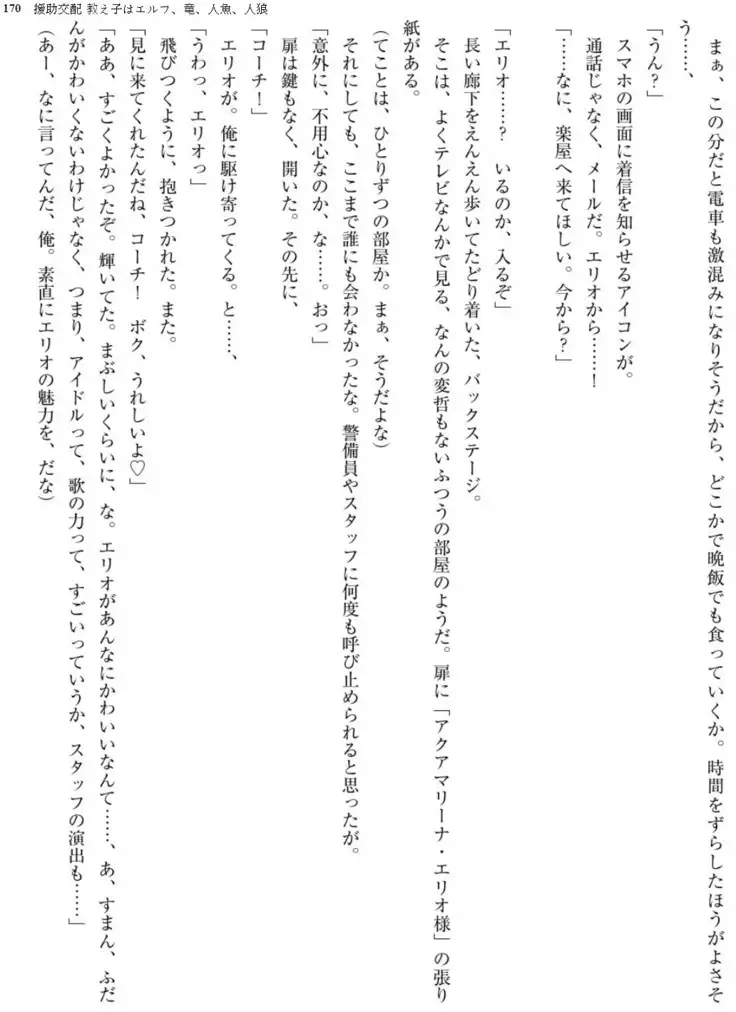 170 援助交配 教え子はエルフ、竜、人魚、人狼
まぁ、この分だと電車も激混みになりそうだから、どこかで晩飯でも食っていくか。時間をずらしたほうがよさそ
う……、
「うん？」
スマホの画面に着信を知らせるアイコンが。
通話じゃなく、メールだ。エリオから……！
「……なに、楽屋へ来てほしい。今から？」
「エリオ……？　いるのか、入るぞ」
長い廊下をえんえん歩いてたどり着いた、バックステージ。
そこは、よくテレビなんかで見る、なんの変哲もないふつうの部屋のようだ。扉に「アクアマリーナ・エリオ様」の張り
紙がある。
（てことは、ひとりずつの部屋か。まぁ、そうだよな）
それにしても、ここまで誰にも会わなかったな。警備員やスタッフに何度も呼び止められると思ったが。
「意外に、不用心なのか、な……。おっ」
扉は鍵もなく、開いた。その先に、
「コーチ！」
エリオが。俺に駆け寄ってくる。と……、
「うわっ、エリオっ」
飛びつくように、抱きつかれた。また。
「見に来てくれたんだね、コーチ！　ボク、うれしいよ♡」
「ああ、すごくよかったぞ。輝いてた。まぶしいくらいに、な。エリオがあんなにかわいいなんて……、あ、すまん、ふだ
んがかわいくないわけじゃなく、つまり、アイドルって、歌の力って、すごいっていうか、スタッフの演出も……」
（あー、なに言ってんだ、俺。素直にエリオの魅力を、だな）